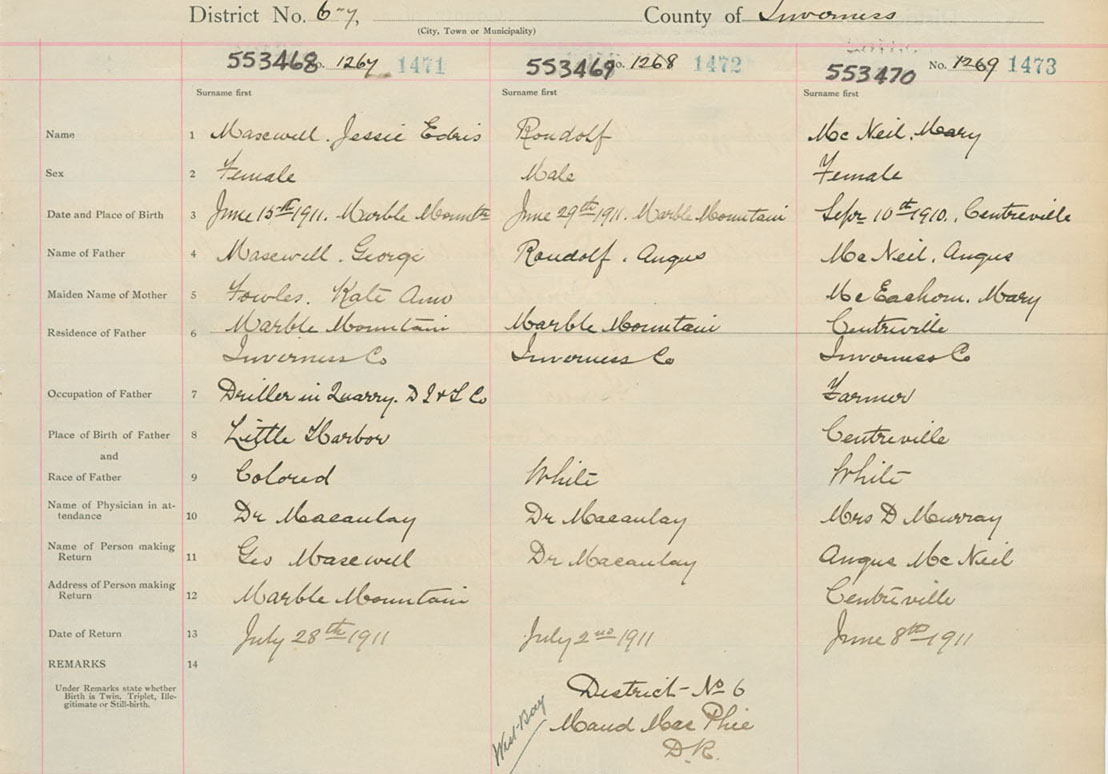 District No. 6-7, County of Inverness
(City, Town or Municipality)
553468 No. 1267 1471 553469 No. 1268 1472 553470 No. 1269 1473
Surname first Surname first Surname first
Name 1 Maxwell. Jessie Edris Roudolf Mc Neil. Mary
Sex 2 Female Male Female
Date and Place of Birth 3 June 15th 1911. Marble Mountn June 29th 1911. Marble Mountain Sepr 10th 1910. Centreville
Name of Father 4 Maxwell. George Roudolf. Angus Mc Neil. Angus
Maiden Name of Mother 5 Fowles. Kate Ann Mc Eachern. Mary
Residence of Father 6 Marble Mountain Marble Mountain Centreville
Inverness Co Inverness Co Inverness Co
Occupation of Father 7 Driller in Quarry. D I & S Co Farmer
Place of Birth of Father 8 Little Harbor Centreville
and
Race of Father 9 Colored White White
Name of Physician in at-
tendance 10 Dr Macaulay Dr Macaulay Mrs D Murray
Name of Person making
Return 11 Geo Maxwell Dr Macaulay Angus Mc Neil
Address of Person making
Return 12 Marble Mountain Centreville
Date of Return 13 July 28th 1911 July 2nd 1911 June 8th 1911
REMARKS 14
Under Remarks state whether
Birth is Twin, Triplet, Ille-
gitimate or Still-birth.
District No 6
West Bay Maud Mac Phie
D.R.